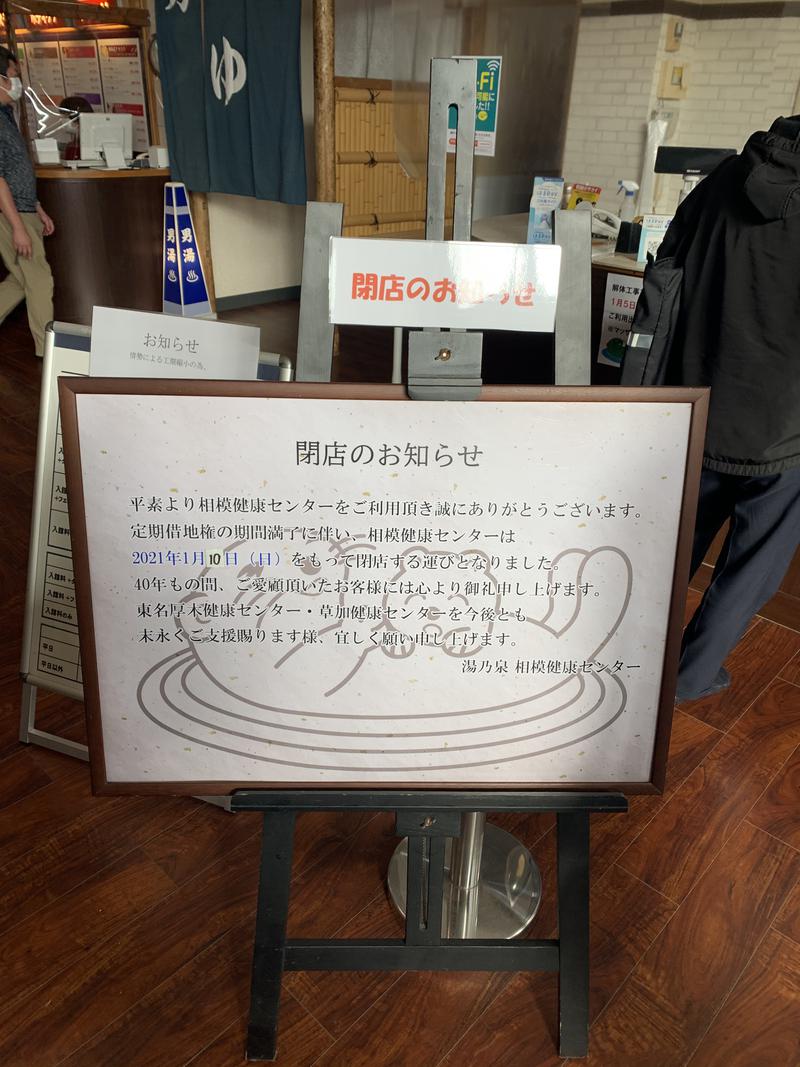 ゆ
Fi
男湯
男湯
閉店のお知らせ
お知らせ
情勢による工期縮小の為、
解体工事
1月5日
ご利用出
閉店のお知らせ
平素より相模健康センターをご利用頂き誠にありがとうございます。
定期借地権の期間満了に伴い、相模健康センターは
2021年1月10日（日）をもって閉店する運びとなりました。
40年もの間、ご愛顧頂いたお客様には心より御礼申し上げます。
東名厚木健康センター・草加健康センターを今後とも
末永くご支援賜ります様、宜しく願い申し上げます。
湯乃泉 相模健康センター
入館料
入館料のみ
平日
平日以外